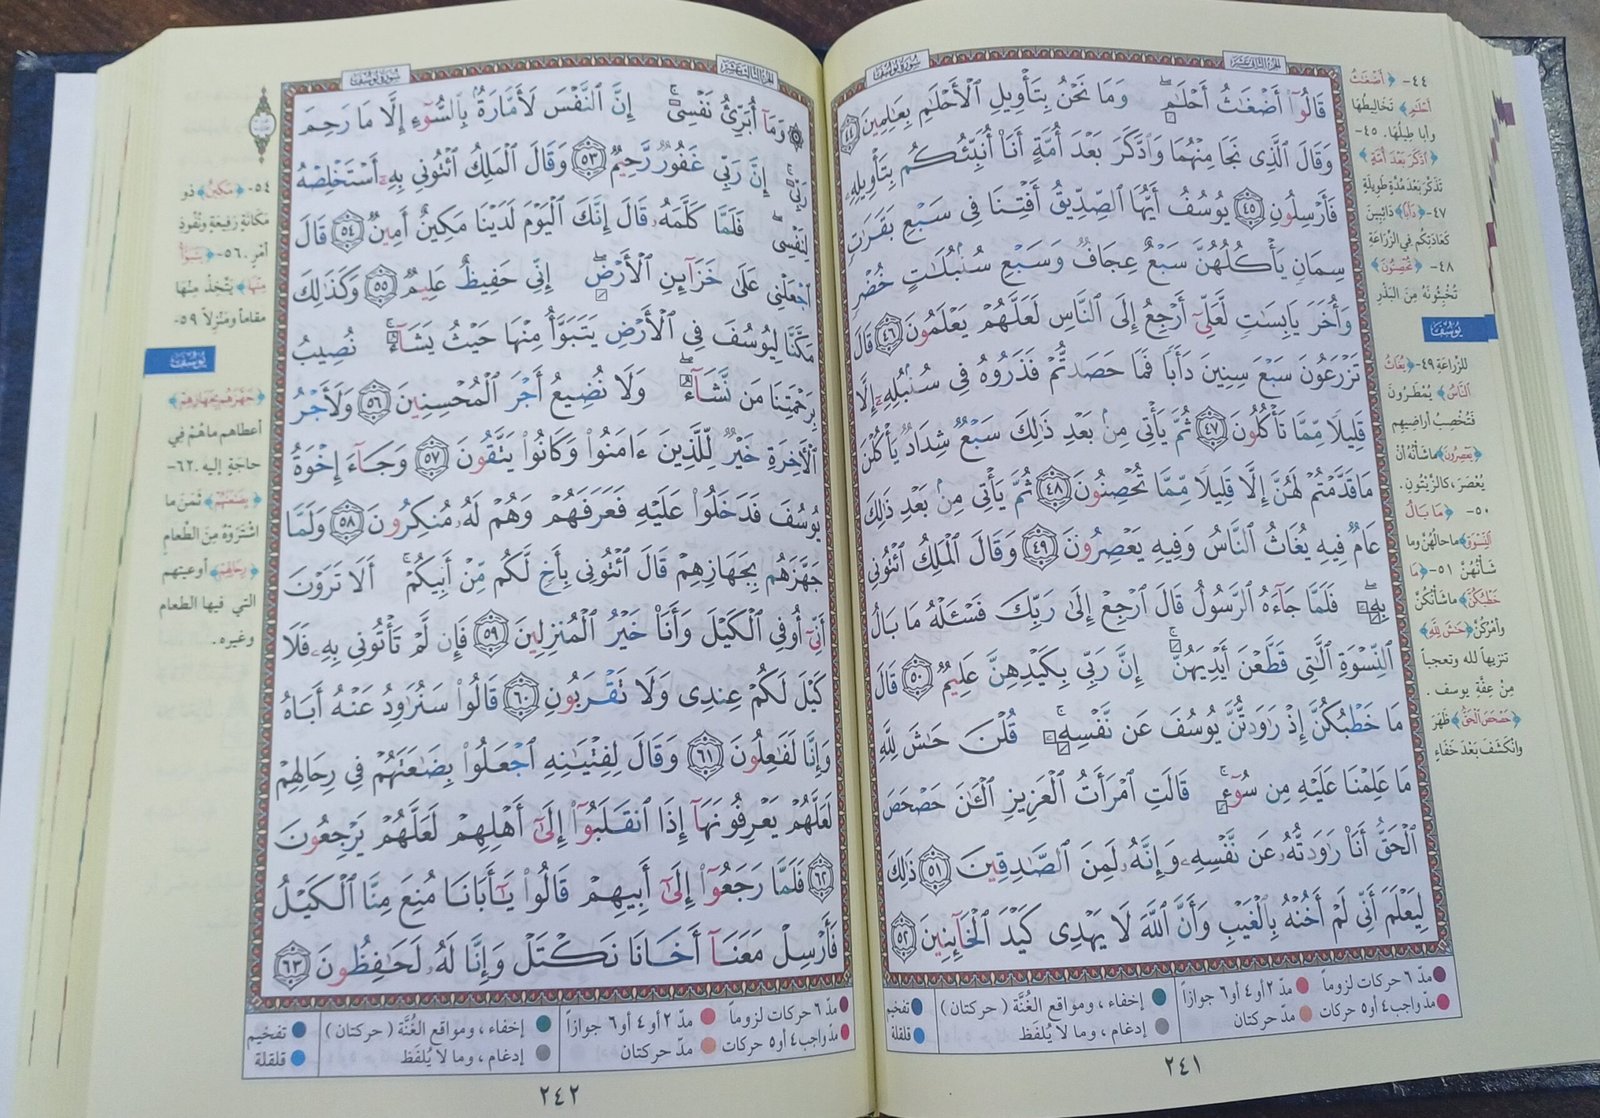 الجزء الثاني عشر
سورة يوسف
قَالُوٓا۟ أَضْغَٰثُ أَحْلَٰمٍۖ وَمَا نَحْنُ بِتَأْوِيلِ ٱلْأَحْلَٰمِ بِعَٰلِمِينَ ٤٤
وَقَالَ ٱلَّذِى نَجَا مِنْهُمَا وَٱدَّكَرَ بَعْدَ أُمَّةٍ أَنَا۠ أُنَبِّئُكُم بِتَأْوِيلِهِۦ
فَأَرْسِلُونِ ٤٥ يُوسُفُ أَيُّهَا ٱلصِّدِّيقُ أَفْتِنَا فِى سَبْعِ بَقَرَٰتٍ
سِمَانٍ يَأْكُلُهُنَّ سَبْعٌ عِجَافٌ وَسَبْعِ سُنۢبُلَٰتٍ خُضْرٍ
وَأُخَرَ يَابِسَٰتٍ لَّعَلِّىٓ أَرْجِعُ إِلَى ٱلنَّاسِ لَعَلَّهُمْ يَعْلَمُونَ ٤٦ قَالَ
تَزْرَعُونَ سَبْعَ سِنِينَ دَأَبًا فَمَا حَصَدتُّمْ فَذَرُوهُ فِى سُنۢبُلِهِۦٓ إِلَّا
قَلِيلًا مِّمَّا تَأْكُلُونَ ٤٧ ثُمَّ يَأْتِى مِنۢ بَعْدِ ذَٰلِكَ سَبْعٌ شِدَادٌ يَأْكُلْنَ
مَا قَدَّمْتُمْ لَهُنَّ إِلَّا قَلِيلًا مِّمَّا تُحْصِنُونَ ٤٨ ثُمَّ يَأْتِى مِنۢ بَعْدِ ذَٰلِكَ
عَامٌ فِيهِ يُغَاثُ ٱلنَّاسُ وَفِيهِ يَعْصِرُونَ ٤٩ وَقَالَ ٱلْمَلِكُ ٱئْتُونِى
بِهِۦۖ فَلَمَّا جَآءَهُ ٱلرَّسُولُ قَالَ ٱرْجِعْ إِلَىٰ رَبِّكَ فَسْـَٔلْهُ مَا بَالُ
ٱلنِّسْوَةِ ٱلَّٰتِى قَطَّعْنَ أَيْدِيَهُنَّۚ إِنَّ رَبِّى بِكَيْدِهِنَّ عَلِيمٌ ٥٠ قَالَ
مَا خَطْبُكُنَّ إِذْ رَٰوَدتُّنَّ يُوسُفَ عَن نَّفْسِهِۦۚ قُلْنَ حَٰشَ لِلَّهِ
مَا عَلِمْنَا عَلَيْهِ مِن سُوٓءٍۚ قَالَتِ ٱمْرَأَتُ ٱلْعَزِيزِ ٱلْـَٰٔنَ حَصْحَصَ
ٱلْحَقُّ أَنَا۠ رَٰوَدتُّهُۥ عَن نَّفْسِهِۦ وَإِنَّهُۥ لَمِنَ ٱلصَّٰدِقِينَ ٥١ ذَٰلِكَ
لِيَعْلَمَ أَنِّى لَمْ أَخُنْهُ بِٱلْغَيْبِ وَأَنَّ ٱللَّهَ لَا يَهْدِى كَيْدَ ٱلْخَآئِنِينَ ٥٢
٤٤- ﴿أَضْغَٰثُ
أَحْلَٰمٍ﴾ تَخَالِيطُهَا
وأباطِيلُهَا. ٤٥-
﴿ادَّكَرَ بَعْدَ أُمَّةٍ﴾
تَذَكَّرَ بَعْدَ مُدَّةٍ طَوِيلَةٍ
٤٧- ﴿دَأَبًا﴾ دَائِبِينَ
كَعَادَتِكُم فِي الزِّرَاعَةِ
٤٨- ﴿تُحْصِنُونَ﴾
تُخَبِّئُونَهُ مِنَ البَذْرِ
يُوسُفَ
للزراعةِ ٤٩- ﴿يُغَاثُ
النَّاسُ﴾ يُمْطَرُونَ
فَتُخْصِبُ أَراضِيهِم
﴿يَعْصِرُونَ﴾ مَا شَأْنُهُ أَنْ
يُعْصَرَ، كالزَّيْتُونِ.
٥٠- ﴿مَا بَالُ
النِّسْوَةِ﴾ مَا حالُهُنَّ وما
شَأْنُهُنَّ ٥١- ﴿مَا
خَطْبُكُنَّ﴾ ما شَأْنُكُنَّ
وأَمْرُكُنَّ ﴿حَٰشَ لِلَّهِ﴾
تنزيهاً لله وتعجباً
مِنْ عِفَّةِ يوسف .
﴿حَصْحَصَ الْحَقُّ﴾ ظَهَرَ
وانْكَشَفَ بَعْدَ خَفَاءٍ
مدّ ٦ حركات لزوماً
مدّ ٢ أو ٤ أو ٦ جوازاً
إخفاء ، ومواقع الغُنَّة ( حركتان )
تفخيم
مدّ واجب ٤ أو ٥ حركات
مدّ حركتان
إدغام ، وما لا يُلفَظ
قلقلة
٢٤١
الجزء الثالث عشر
سورة يوسف
وَمَآ أُبَرِّئُ نَفْسِىٓۚ إِنَّ ٱلنَّفْسَ لَأَمَّارَةٌۢ بِٱلسُّوٓءِ إِلَّا مَا رَحِمَ
رَبِّىٓۚ إِنَّ رَبِّى غَفُورٌ رَّحِيمٌ ٥٣ وَقَالَ ٱلْمَلِكُ ٱئْتُونِى بِهِۦٓ أَسْتَخْلِصْهُ
لِنَفْسِىۖ فَلَمَّا كَلَّمَهُۥ قَالَ إِنَّكَ ٱلْيَوْمَ لَدَيْنَا مَكِينٌ أَمِينٌ ٥٤ قَالَ
ٱجْعَلْنِى عَلَىٰ خَزَآئِنِ ٱلْأَرْضِۖ إِنِّى حَفِيظٌ عَلِيمٌ ٥٥ وَكَذَٰلِكَ
مَكَّنَّا لِيُوسُفَ فِى ٱلْأَرْضِ يَتَبَوَّأُ مِنْهَا حَيْثُ يَشَآءُۚ نُصِيبُ
بِرَحْمَتِنَا مَن نَّشَآءُۖ وَلَا نُضِيعُ أَجْرَ ٱلْمُحْسِنِينَ ٥٦ وَلَأَجْرُ
ٱلْءَاخِرَةِ خَيْرٌ لِّلَّذِينَ ءَامَنُوا۟ وَكَانُوا۟ يَتَّقُونَ ٥٧ وَجَآءَ إِخْوَةُ
يُوسُفَ فَدَخَلُوا۟ عَلَيْهِ فَعَرَفَهُمْ وَهُمْ لَهُۥ مُنكِرُونَ ٥٨ وَلَمَّا
جَهَّزَهُم بِجَهَازِهِمْ قَالَ ٱئْتُونِى بِأَخٍ لَّكُم مِّنْ أَبِيكُمْۚ أَلَا تَرَوْنَ
أَنِّىٓ أُوفِى ٱلْكَيْلَ وَأَنَا۠ خَيْرُ ٱلْمُنزِلِينَ ٥٩ فَإِن لَّمْ تَأْتُونِى بِهِۦ فَلَا
كَيْلَ لَكُمْ عِندِى وَلَا تَقْرَبُونِ ٦٠ قَالُوا۟ سَنُرَٰوِدُ عَنْهُ أَبَاهُ
وَإِنَّا لَفَٰعِلُونَ ٦١ وَقَالَ لِفِتْيَٰنِهِ ٱجْعَلُوا۟ بِضَٰعَتَهُمْ فِى رِحَالِهِمْ
لَعَلَّهُمْ يَعْرِفُونَهَآ إِذَا ٱنقَلَبُوٓا۟ إِلَىٰٓ أَهْلِهِمْ لَعَلَّهُمْ يَرْجِعُونَ
٦٢ فَلَمَّا رَجَعُوٓا۟ إِلَىٰٓ أَبِيهِمْ قَالُوا۟ يَٰٓأَبَانَا مُنِعَ مِنَّا ٱلْكَيْلُ
فَأَرْسِلْ مَعَنَآ أَخَانَا نَكْتَلْ وَإِنَّا لَهُۥ لَحَٰفِظُونَ ٦٣
٥٤- ﴿مَكِينٌ﴾ ذو
مَكَانَةٍ رَفِيعَةٍ ونُفُوذِ
أمْرٍ .٥٦- ﴿يَتَبَوَّأُ
مِنْهَا﴾ يَتَّخِذُ مِنْهَا
مقاماً ومَنْزِلاً ٥٩-
يُوسُفَ
﴿جَهَّزَهُم بِجَهَازِهِمْ﴾
أعطاهم ماهُمْ فِي
حاجَةٍ إليه .٦٢-
﴿بِضَٰعَتَهُمْ﴾ ثَمَنَ ما
اشْتَرَوْهُ مِنَ الطَّعامِ
﴿رِحَالِهِمْ﴾ أوعيتهم
التي فيها الطعام
وغيره .
مدّ ٦ حركات لزوماً
مدّ ٢ أو ٤ أو ٦ جوازاً
إخفاء ، ومواقع الغُنَّة ( حركتان )
تفخيم
مدّ واجب ٤ أو ٥ حركات
مدّ حركتان
إدغام ، وما لا يُلفَظ
قلقلة
٢٤٢